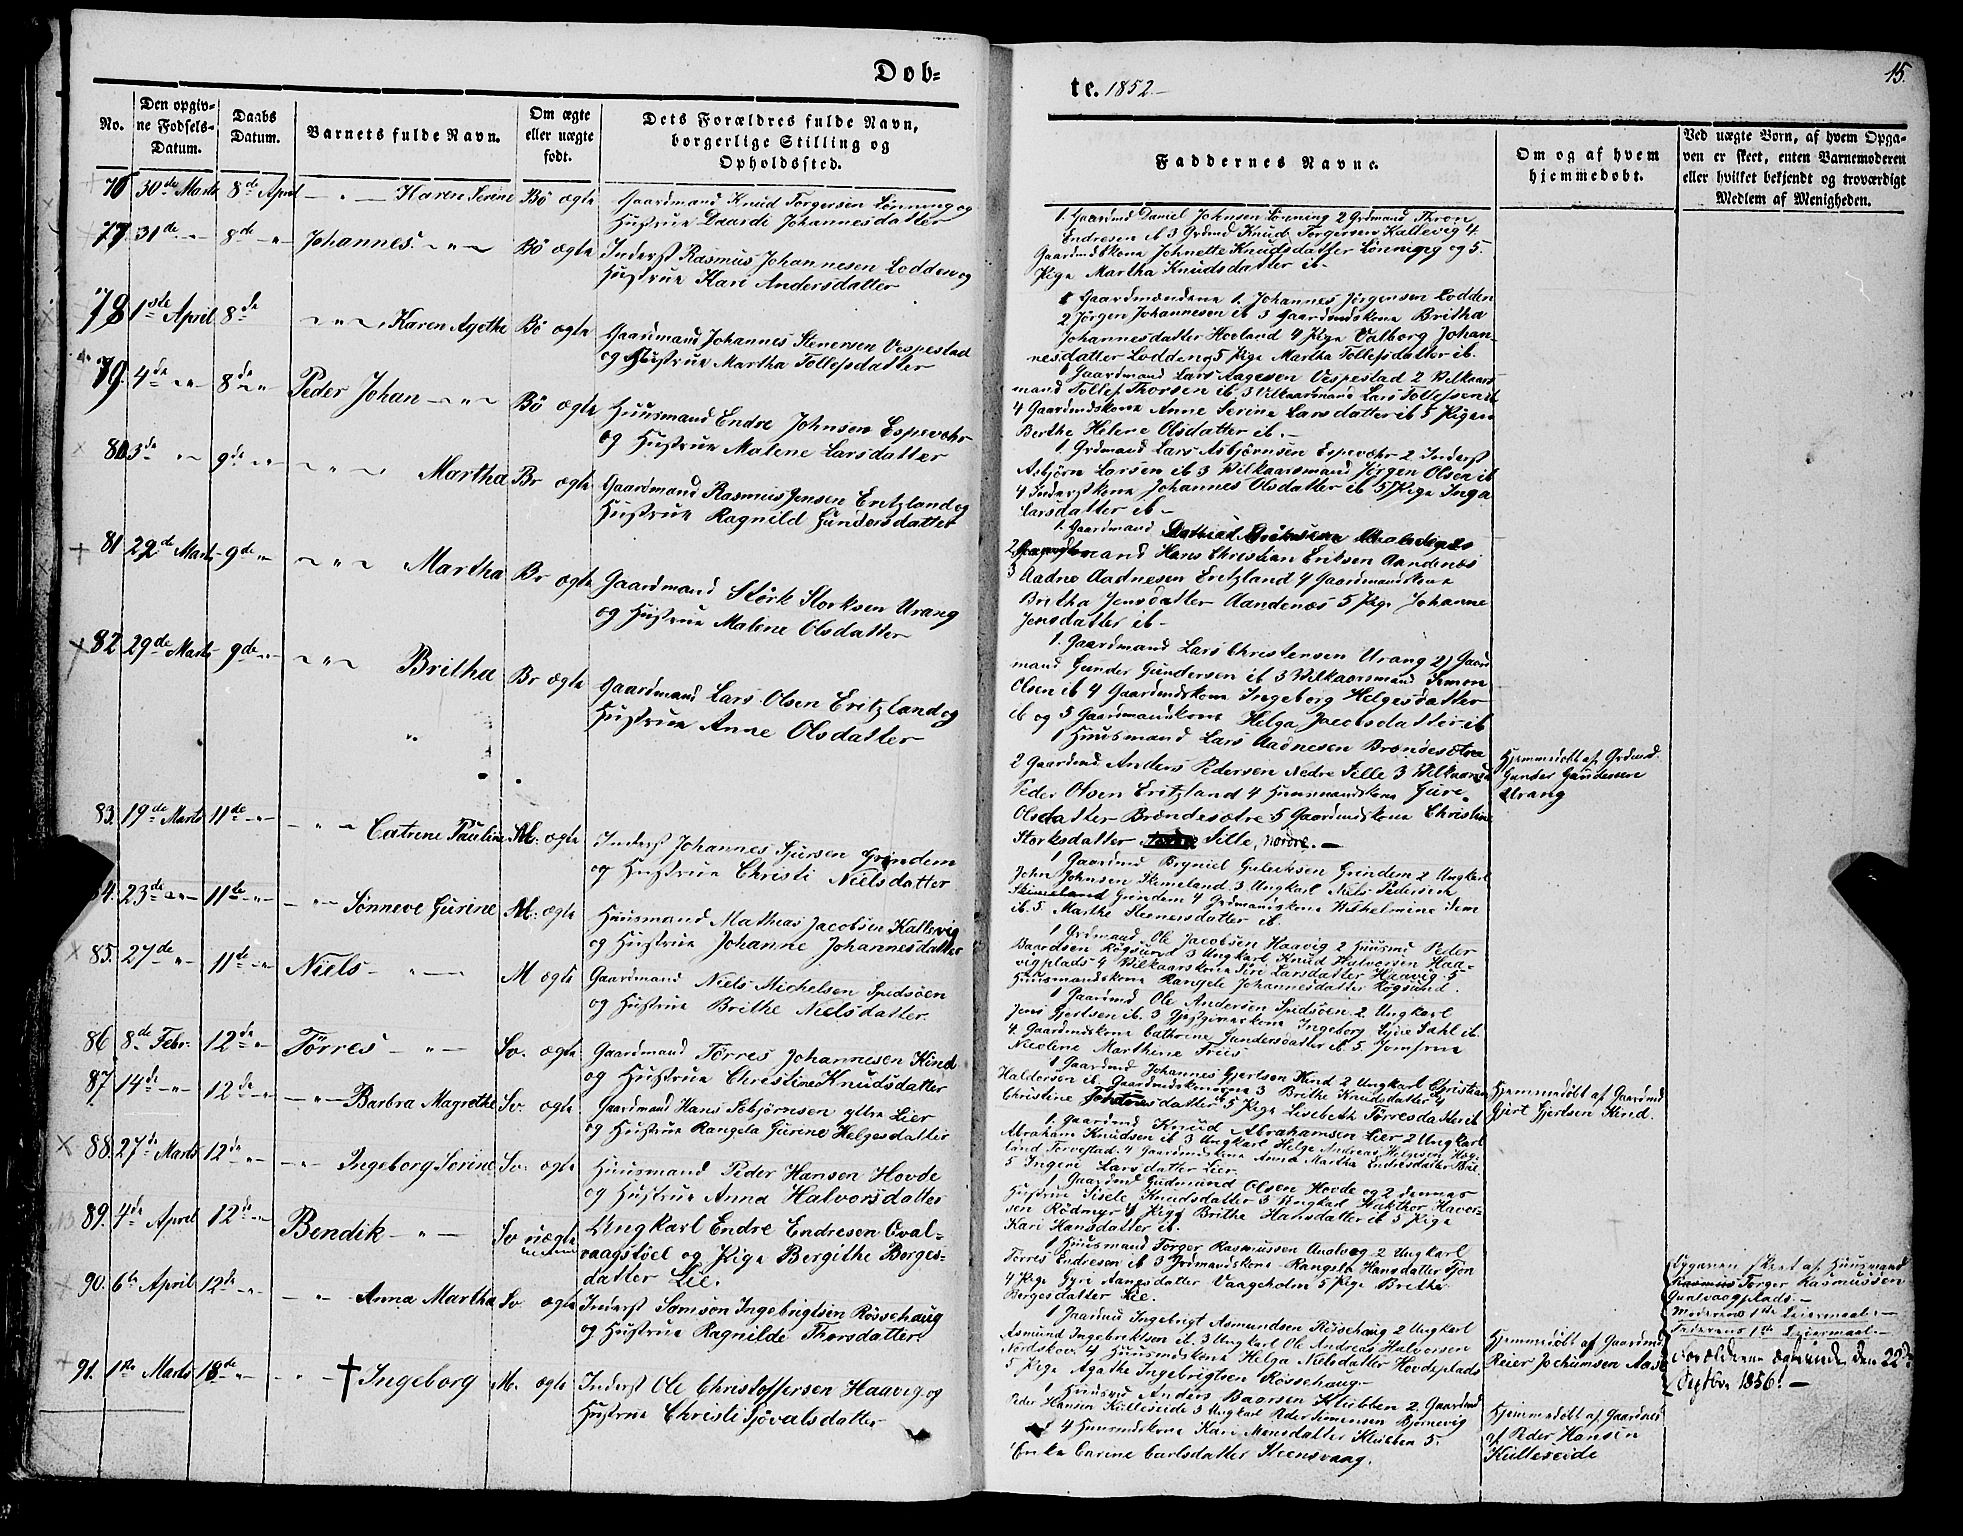 Dob-
No.
Den opgiv-
ne Fodsels-
Datum.
Daabs
Datum.
Barnets fulde Navn.
Om ægte
eller uægte
fodt.
Dets Forældres fulde Navn,
borgerlige Stilling og
Opholdssted.
76 30de Marts 8de April — " — Karen Serine Bö ægte Gaardmand Knud Torgersen Lönning og
Hustrue Johannesdatter
77 31de " 8de " Johannes " Bö ægte Inderst Rasmus Johannesen Lodden og
Hustrue Kari Andersdatter
78 1ste April 8de " Karen Agethe Bö ægte Gaardmand Johannes Stenersen Vespestad
og Hustrue Martha Tollefsdatter
79. 4de " 8de " Peder Johan — " — Bö ægte Huusmand Endre Johnsen Espevær
og Hustrue Malene Larsdatter
80 3de " 9de " Martha Br ægte Gaardmand Rasmus Jensen Eritzland og
Hustrue Ragnild Gundersdatter
81 29de Marts 9de " Martha Br ægte Gaardmand Störk Storksen Urang
og Hustrue Malene Olsdatter
82 29de Marts 9de " Britha Br ægte Gaardmand Lars Olsen Eritzland og
Hustrue Anne Olsdatter
83. 19de Marts 11de " Catrene Pauline M. ægte Inderst Johannes Sjursen Grindem
og Hustrue Christi Nielsdatter
84. 23de " 11te " Sönneve Gurine M. ægte Huusmand Mathias Jacobsen Kallevig
og Hustrue Johanne Johannesdatter
85. 27de " 11te " Niels — " — M ægte Gaardmand Niels Michelsen Spidsöen
og Hustrue Brithe Nielsdatter
86 8de Febr. 12te " Törres — " — Sv. ægte Gaardmand Törres Johannesen Kind
og Hustrue Christine Knudsdatter
87. 14de " 12te " Barbra Magrethe Sv. ægte Gaardmand Hans Asbjörnsen ytre Lier
og Hustrue Rangela Gurine Helgesdatter
88. 27de Marts 12te " Ingeborg Serine Sv. ægte Huusmand Peder Hansen Hovde
og Hustrue Anna Halvorsdatter
89. 4de April 12te " Bendik — " — Sv uægte Ungkarl Endre Endresen Qval-
vaagstöel og Pige Bergithe Borges-
datter Lie.
90. 6te April 12te " Anna Martha Sv. ægte Inderst Samson Ingebrigtsen Rössehaug
og Hustrue Ragnilde Thorsdatter
91. 1ste Marts 18de " † Ingeborg M. ægte Inderst Ole Christoffersen Haavig og
Hustrue Christi Sjovatsdatter
te. 1852.—
15.
Faddernes Navne.
Om og af hvem
hjemmedobt.
Ved uægte Born, af hvem Opga-
ven er skeet, enten Barnemoderen
eller hvilket bekjendt og troværdigt
Medlem af Menigheden.
1. Gaardmd Daniel Johnsen Lönning 2 Grdmand Thron
Endresen ib 3 Grdmd Knud Torgersen Kallevig 4
Gaardmdskone Johnette Knudsdatter Lönning og 5.
Pige Martha Knudsdatter ib —
Gaardmændene 1. Johannes Jörgensen Lodden
2 Jörgen Johannesen ib 3 Gaardmdskone Britha
Johannesdatter Hovland 4 Pige Valborg Johan-
nesdatter Lodden og 5 Pige Martha Tollefsdatter ib.
1 Gaardmand Lars Aagesen Vespestad 2 Vilkaars-
mand Tollef Thorsen ib 3 Vilkaarsmand Lars Tollefsen ib
4 Gaardmdskone Anne Serine Larsdatter ib 5 Pigen
Berthe Helene Olsdatter ib. —
1. Grdmand Lars Asbjörnsen Espevær 2 Inderst
Asbjörn Larsen ib 3 Vilkaarsmand Jörgen Olsen ib
4 Inderstkone Johannes Olsdatter ib 5 Pige Inga
Larsdatter ib —
1. Gaardmand
2 Gaardmand Hans Christian Eriksen Aandenæs
3 Aadne Aadnesen Eritzland 4 Gaardmandskone
Britha Jensdatter Aandenæs 5 Pige Johanne
Jensdatter ib —
1. Gaardmand Lars Christensen Urang 2 Gaard-
mand Gunder Gundersen ib 3 Vilkaarsmand Simon
Olsen ib 4 Gaardmdskone Ingeborg Helgesdatter
ib og 5 Gaardmandskone Helga Jacobsdatter ib
1 Huusmand Lars Aadnesen Brændesætre
2 Gaardmd Anders Pedersen Nedre Sille 3 Vilkaarsmd
Peder Olsen Eritzland 4 Huusmandskone Gure
Olsdatter Brændesætre 5 Gaardmdskone Christine
Storksdatter Sille, nordre. —
Hjemmedöbt af Grdmd.
Gunder Gundersen
Urang
1 Gaardmd Bryniel Guleiksen Grindem 2 Ungkarl
John Johnsen Skimeland 3 Ungkarl Niels Pedersen
Grindem 4 Grdmandskone Wilhelmine
ib. 5 Marthe Stenersdatter ib.
1 Grdmand Ole Jacobsen Haavig 2 Huusmd Peder
Baardsen Rögsund 3 Ungkarl Knud Halvorsen Haa-
vigplads 4 Vilkaarskone Siri Larsdatter Haavig 5
Huusmandskone Rangele Johannesdatter Rögsund.
1 Gaardmd Ole Andersen Spidsöen 2 Ungkarl
Jens Gjertsen ib. 3 Gjestgiverskone Ingeborg Dahl ib.
4. Gaardmdskone Cathrine Gundersdatter ib 5. Jomfrue
Nicoline Marthine Friis
1 Gaardmd Johannes Gjertsen Kind 2 Ungkarl Christian
Haldorsen ib Gaardmdskonerne 3 Brithe Knudsdatter 4
Christine datter 5 Pige Lisebeth Törresdatter ib
Hjemmedöbt af Gaardmd
Gjert Gjertsen Kind.
1. Gaardmd Knud Abrahamsen Lier 2 Ungkarl
Abraham Knudsen ib 3 Ungkarl Helge Andreas Helgesen Hög-
land Torvestad 4 Gaardmdskone Anna Martha Endresdatter
5 Ingeri Larsdatter Lier.
1. Gaardmd Gudmund Olsen Hovde og 2 dennes
Hustrue Sisele Knudsdatter 3 Ungkarl Haver-
sen Rödmyr 4 Pige Brithe Hansdatter ib 5 Pige
Kari Hansdatter ib.
1 Huusmand Torger Rasmussen 2 Ungkarl
Törres Endresen ib 3 Grdmandskone Rangela Hansdatter Tjön
4 Pige Gyri Aanesdatter Vaageholm 5 Pige Brithe
Borgesdatter Lie.
Opgaven skeet af Huusmand
Torger Rasmussen
Qualvaagplads. —
Moderens 1ste Leiermaal. —
Faderens 1ste Leiermaal. —
Forældrene ægteviede den 22de
Septbr 1856. —
1 Gaardmd Ingebrigt Asmundsen Rössehaug 2 Ungkarl
Asmund Ingebrigtsen ib 3 Ungkarl Ole Andreas Halvorsen
Nordskov 4 Huusmdskone Helga Nielsdatter Hovdeplads
5 Pige Agathe Ingebrigtsen Rössehaug —
Hjemmedöbt af Gaardmd
Reier Jochumsen Aase
1 Huusmd Anders Baarsen Klubben 2. Gaardmd
Peder Hansen Kulleseide 3 Ungkarl Peder Simensen Bjørnevig
4 Huusmdskone Kari Monsdatter Klubben 5.
Erika Carine Carlsdatter Steensvaag.
Hjemmedöbt af Gaardmd
af Peder Hansen
Kulleseide